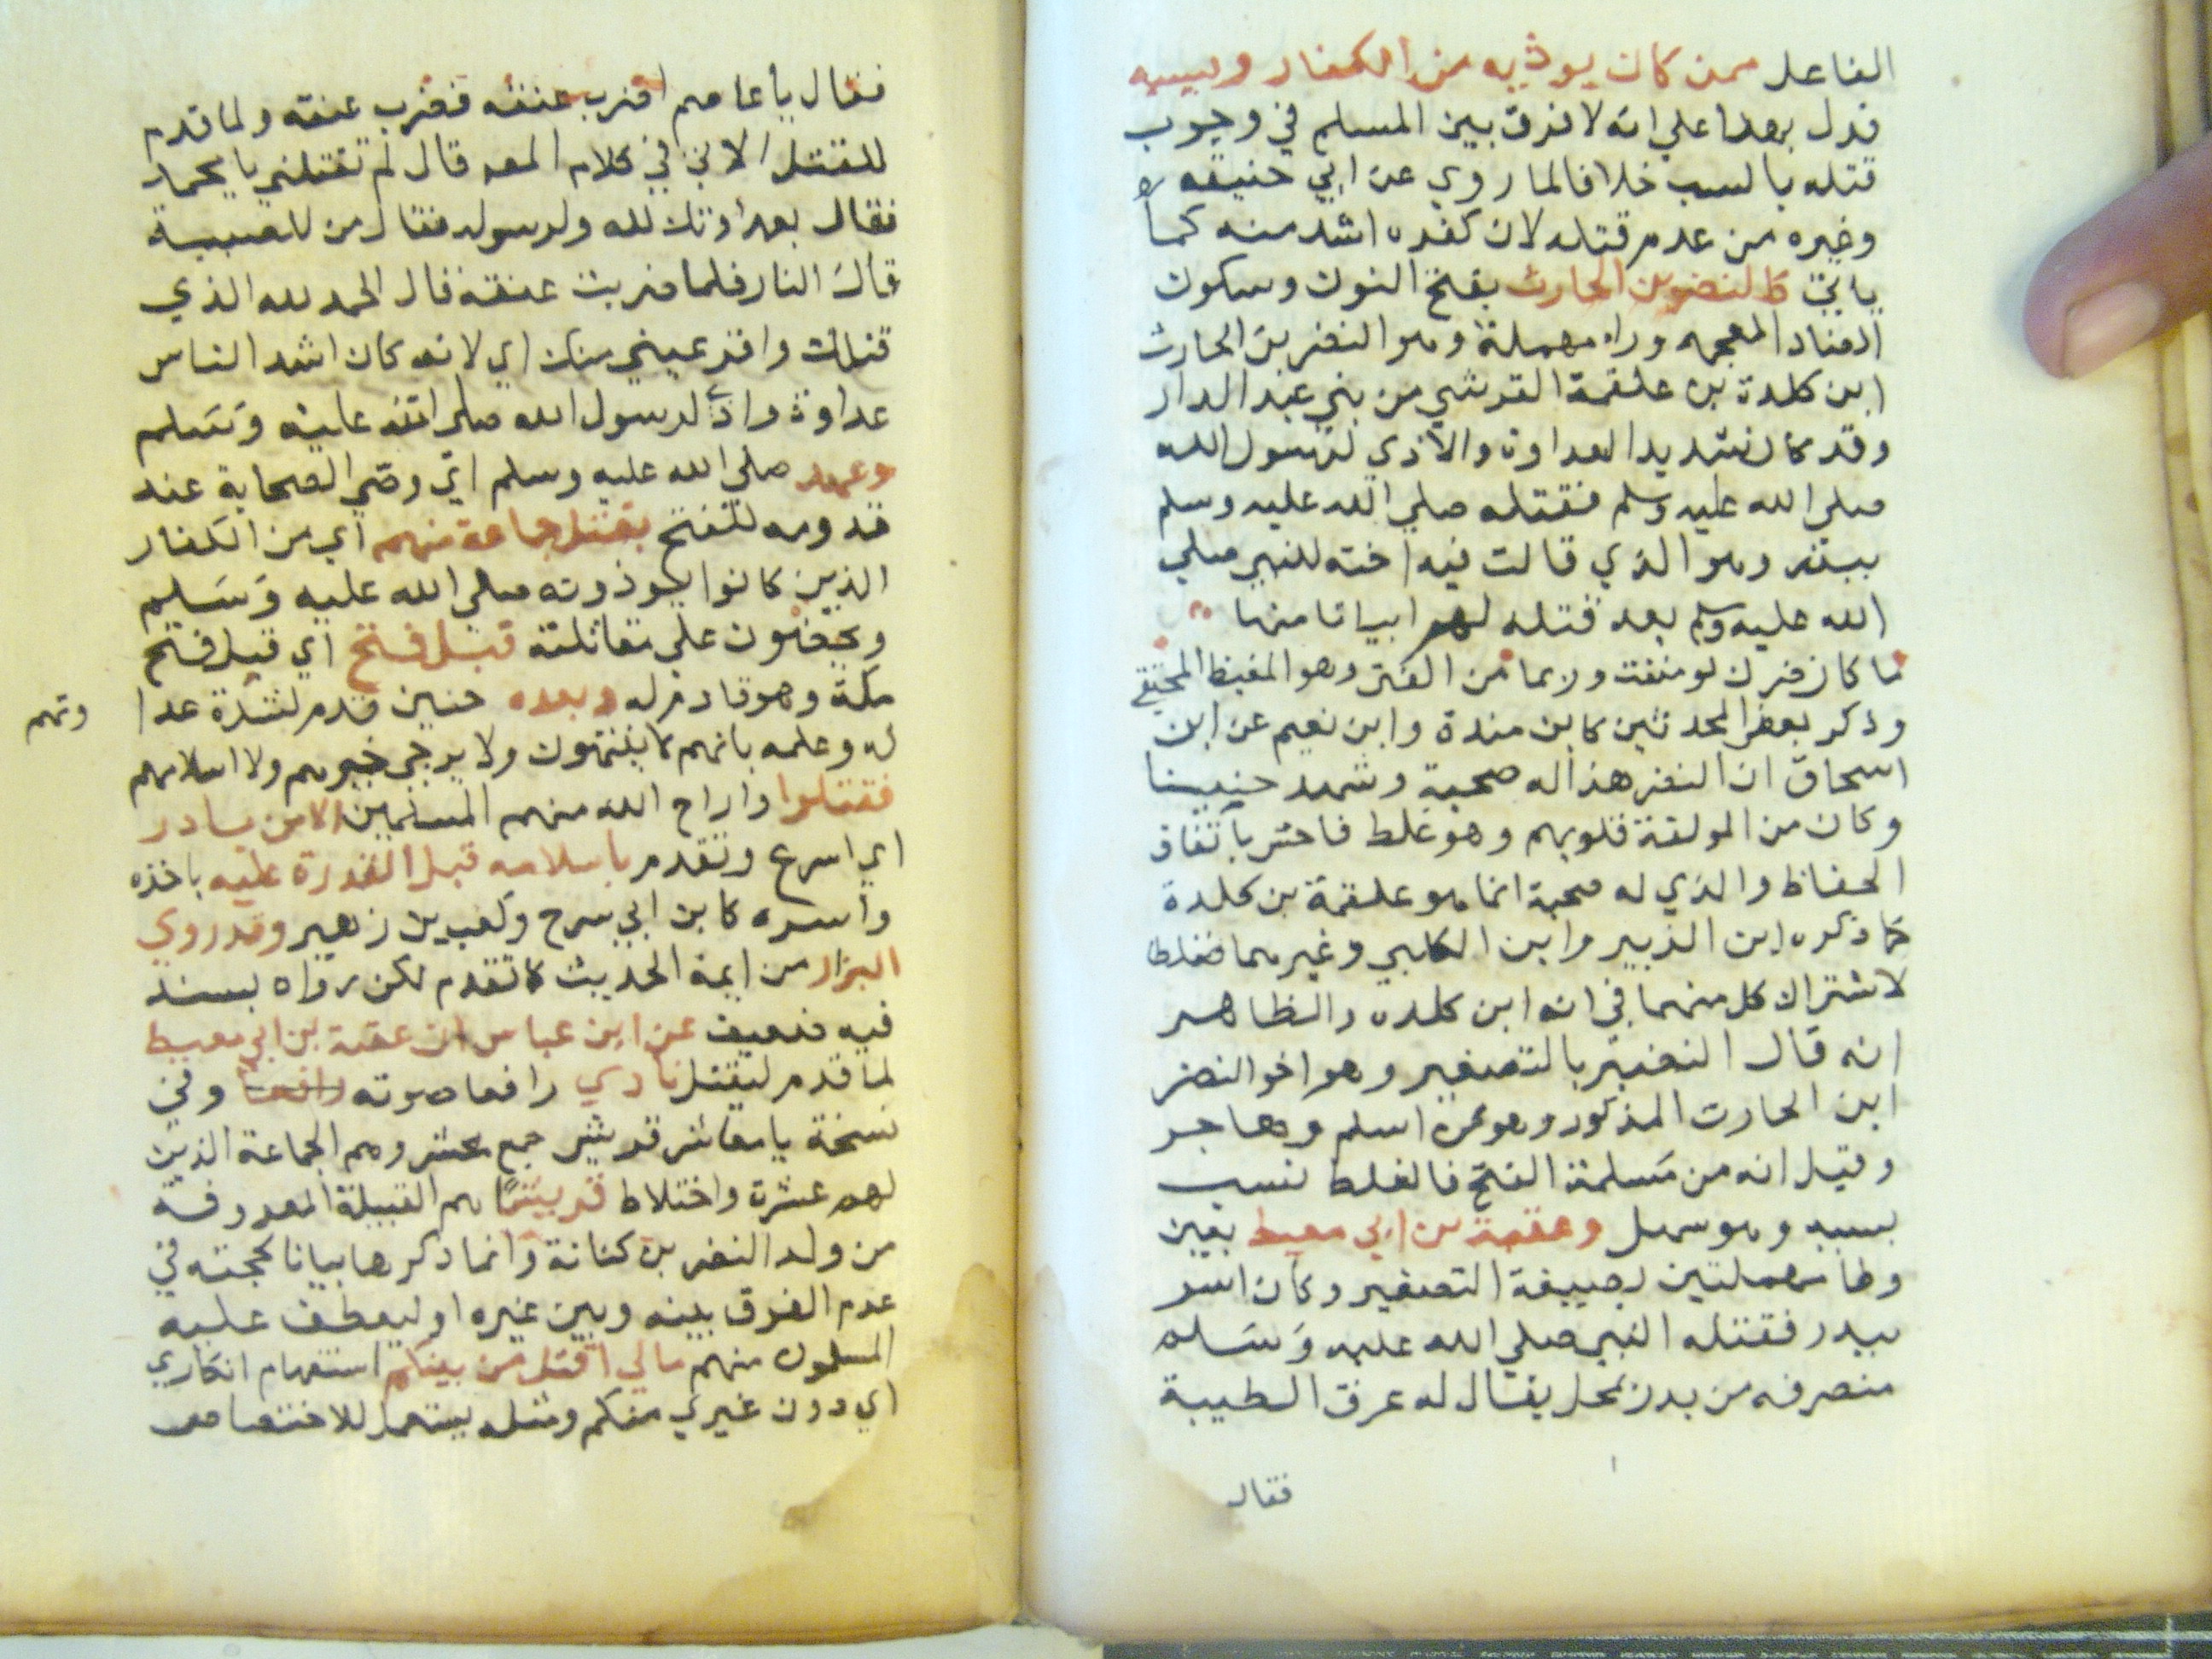 الفاعل ممن كان يوذيه من الكفار ويسبه
فدل بهذا علي انه لا فرق بين المسلم في وجوب
قتله بالسب خلافا لما روي عن ابي حنيفه
وغيره من عدم قتله لان كفره اشد منه كما
ياتي كالنضر بن الحارث بفتح النون وسكون
الضاد المعجمه وراء مهملة وهو النضر بن الحارث
ابن كلدة بن علقمة القرشي من بني عبد الدار
وقد كان شديد العداوة والاذي لرسول الله
صلي الله عليه وسلم فقتله صلي الله عليه وسلم
ببدر وهو الذي قالت فيه اخته للنبي صلي
الله عليه وسلم بعد قتله لهم ابياتا منها
ما كان ضرك لو مننت وربما من الفتي وهو المغيظ المحنق
وذكر بعض المحدثين كابن مندة وابن نعيم عن ابن
اسحاق ان النضر هذا له صحبة وشهد حنينا
وكان من المولفة قلوبهم وهو غلط فاحش باتفاق
الحفاظ والذي له صحبة انما هو علقمة بن كلدة
كما ذكره ابن الزبير وابن الكلبي وغيرهما فغلط
لاشتراك كل منهما في انه ابن كلده والظاهر
انه قال النضير بالتصغير وهو اخو النضر
ابن الحارث المذكور وهو ممن اسلم وهاجر
وقيل انه من مسلمة الفتح فالغلط نسب
بسببه وهو سهل وعقبة بن ابي معيط بعين
وطا مهملتين بصيغة التصغير وكان اسر
ببدر فقتله النبي صلي الله عليه وسلم
منصرفه من بدر بمحل يقال له عرق الطيبة
فقال
فقال يا عاصم اضرب عنقه فضرب عنقه ولما قدم
للقتل الاتي في كلام المص قال لم تقتلني يا محمد
فقال بعداوتك لله ولرسوله فقال من للصبية
قال النار فلما ضربت عنقه قال الحمد لله الذي
قتلك واقر عيني منك اي لانه كان اشد الناس
عداوة واذي لرسول الله صلي الله عليه وسلم
وعهد صلي الله عليه وسلم اي وصي الصحابة عند
قدومه للفتح بقتل جماعة منهم اي من الكفار
الذين كانوا يوذونه صلي الله عليه وسلم
ويحضون علي مقاتلته قبل فتح اي قبل فتح
مكة وهو قادم له وبعده حنين قدم لشدة عدا وتهم
له وعلمه بانهم لا ينتهون ولا يرجي خيرهم ولا اسلامهم
فقتلوا واراح الله منهم المسلمين الا من بادر
اي اسرع وتقدم باسلامه قبل القدرة عليه باخذه
واسره كابن ابي سرح وكعب بن زهير وقد روي
البزار من ايمة الحديث كما تقدم لكن رواه بسند
فيه ضعيف عن ابن عباس ان عقبة بن ابي معيط
لما قدم ليقتل نادي رافعا صوته رافعا وفي
نسخة يا معاشر قريش جمع معشر وهم الجماعة الذين
لهم عشرة واختلاط قريشا هم القبيلة المعروفة
من ولد النضر بن كنانة وانما ذكرها بيانا لحجته في
عدم الفرق بينه وبين غيره او ليعطف عليه
المسلمون منهم مالي اقتل من بينكم استفهام انكاري
اي دون غيري منكم ومثله يستعمل للاختصاص